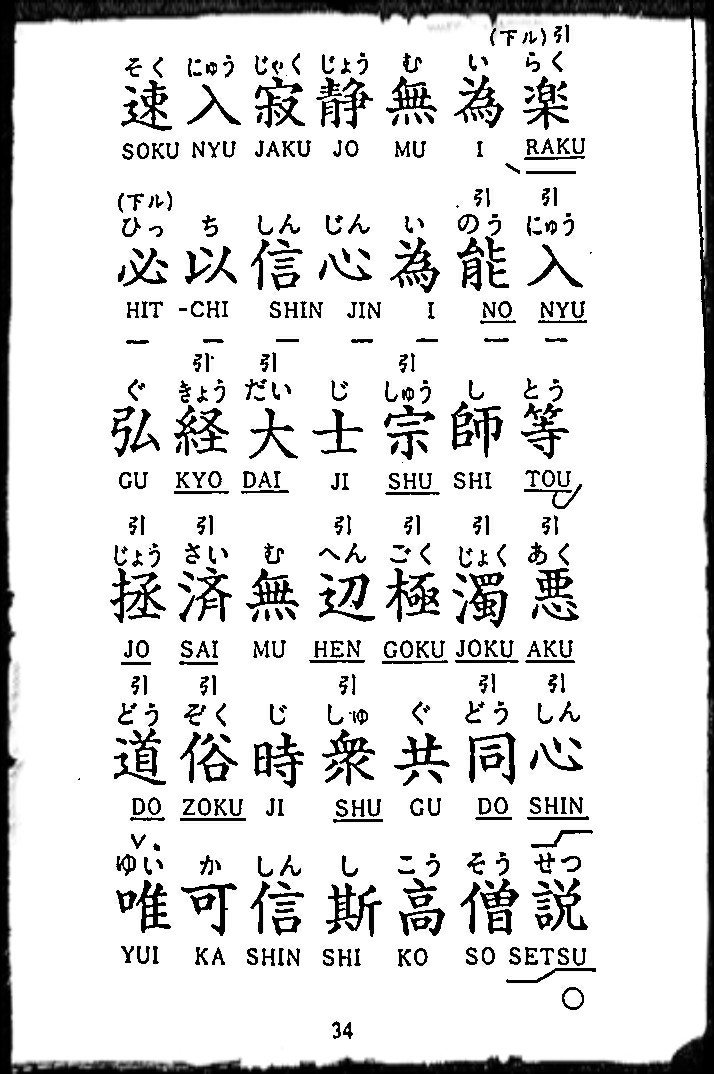 (下ル)引
そく にゅう じゃく じょう む い らく
速 入 寂 静 無 為 楽
SOKU NYU JAKU JO MU I RAKU
(下ル) 引 引
ひっ ち しん じん い のう にゅう
必 以 信 心 為 能 入
HIT -CHI SHIN JIN I NO NYU
引 引 引
ぐ きょう だい じ しゅう し とう
弘 経 大 士 宗 師 等
GU KYO DAI JI SHU SHI TOU
引 引 引 引 引 引
じょう さい む へん ごく じょく あく
拯 済 無 辺 極 濁 悪
JO SAI MU HEN GOKU JOKU AKU
引 引 引 引 引
どう ぞく じ しゅ ぐ どう しん
道 俗 時 衆 共 同 心
DO ZOKU JI SHU GU DO SHIN
ゆい か しん し こう そう せつ
唯 可 信 斯 高 僧 説
YUI KA SHIN SHI KO SO SETSU
34